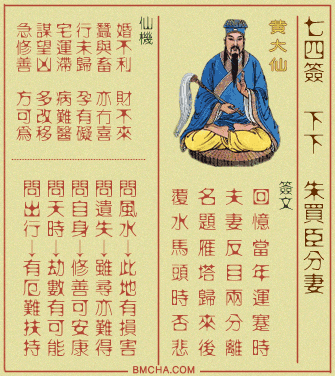 七四簽 下下 朱買臣分妻
黃大仙
簽文
回憶當年運蹇時
夫妻反目兩分離
名題雁塔歸來後
覆水馬頭時否悲
仙機
婚不利 財不來
蠶與畜 亦冇喜
行未歸 孕有礙
宅運滯 病難醫
謀望凶 多改移
急修善 方可為
問風水↓此地有損害
問遺失↓雖尋亦難得
問自身↓修善可安康
問天時↓劫數有可能
問出行↓有厄難扶持
BMCHA.COM